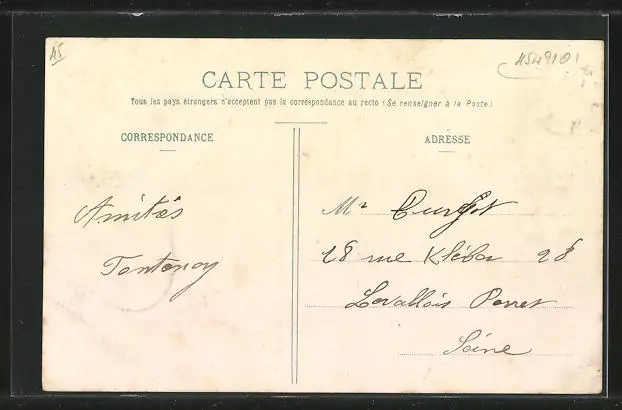 45
4549101
CARTE POSTALE
Tous les pays étrangers n'acceptent pas la correspondance au recto (Se renseigner à la Poste)
CORRESPONDANCE
ADRESSE
Amitiés
Fontenoy
Mr
28 rue Kléber 28
Levallois Perret
Seine